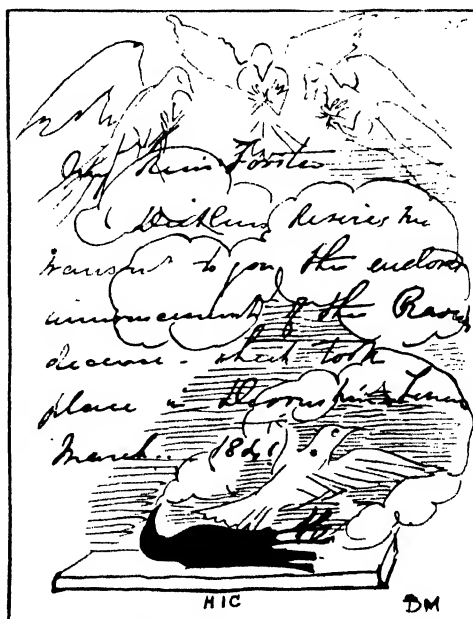 My dear Forster
Dickens desires me
transmit to you the enclosed
announcement of the Raven's
decease - which took
place in Devonshire Terrace
March.. 1841
HIC
DM